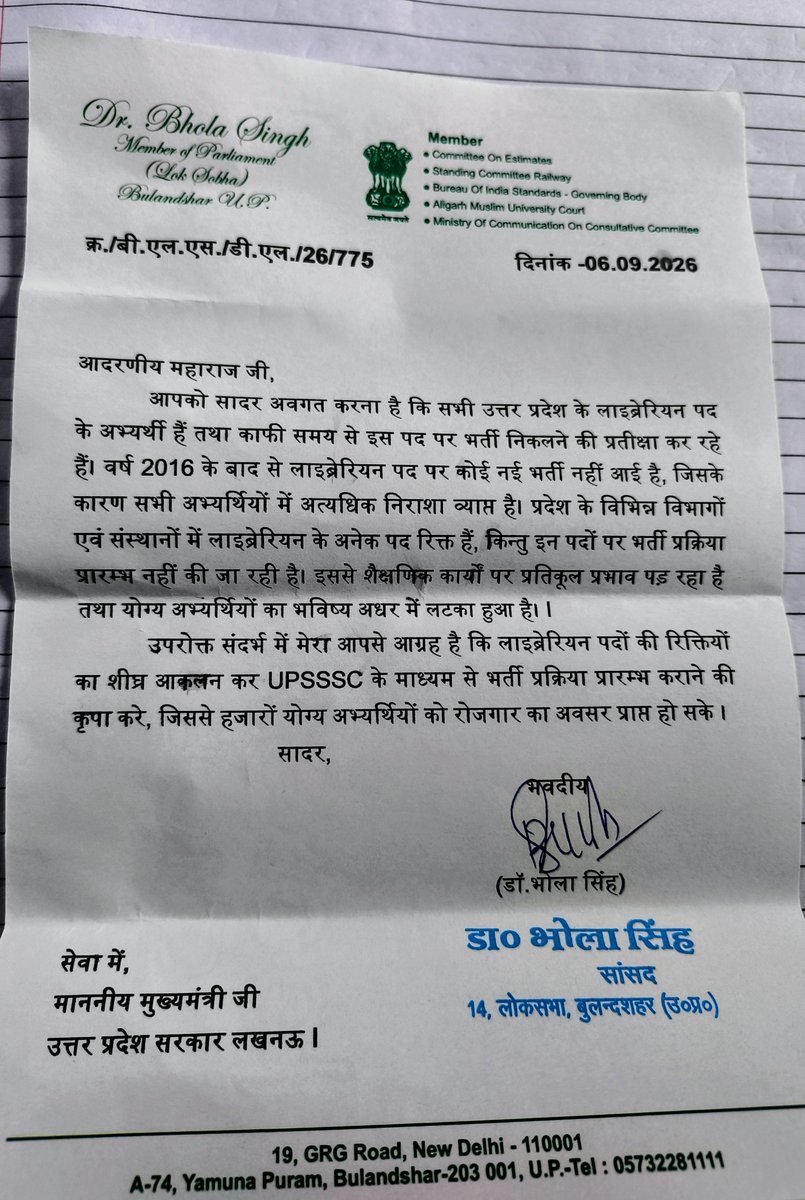 Dr. Bhola Singh
Member of Parliament
(Lok Sobha)
Bulandshar U.P.
सत्यमेव जयते
Member
• Committee On Estimates
• Standing Committee Railway
• Bureau Of India Standards - Governing Body
• Aligarh Muslim University Court
• Ministry Of Communication On Consultative Committee
क्र./बी.एल.एस./डी.एल./26/775
दिनांक -06.09.2026
आदरणीय महाराज जी,
आपको सादर अवगत करना है कि सभी उत्तर प्रदेश के लाइब्रेरियन पद
के अभ्यर्थी हैं तथा काफी समय से इस पद पर भर्ती निकलने की प्रतीक्षा कर रहे
हैं। वर्ष 2016 के बाद से लाइब्रेरियन पद पर कोई नई भर्ती नहीं आई है, जिसके
कारण सभी अभ्यर्थियों में अत्यधिक निराशा व्याप्त है। प्रदेश के विभिन्न विभागों
एवं संस्थानों में लाइब्रेरियन के अनेक पद रिक्त हैं, किन्तु इन पदों पर भर्ती प्रक्रिया
प्रारम्भ नहीं की जा रही है। इससे शैक्षणिक कार्यों पर प्रतिकूल प्रभाव पड़ रहा है
तथा योग्य अभ्यर्थियों का भविष्य अधर में लटका हुआ है।।
उपरोक्त संदर्भ में मेरा आपसे आग्रह है कि लाइब्रेरियन पदों की रिक्तियों
का शीघ्र आकलन कर UPSSSC के माध्यम से भर्ती प्रक्रिया प्रारम्भ कराने की
कृपा करे, जिससे हजारों योग्य अभ्यर्थियों को रोजगार का अवसर प्राप्त हो सके।
सादर,
भवदीय
(डॉ.भोला सिंह)
डा० भोला सिंह
सांसद
14, लोकसभा, बुलन्दशहर (उ०प्र०)
सेवा में,
माननीय मुख्यमंत्री जी
उत्तर प्रदेश सरकार लखनऊ।
19, GRG Road, New Delhi - 110001
A-74, Yamuna Puram, Bulandshar-203 001, U.P.-Tel : 05732281111